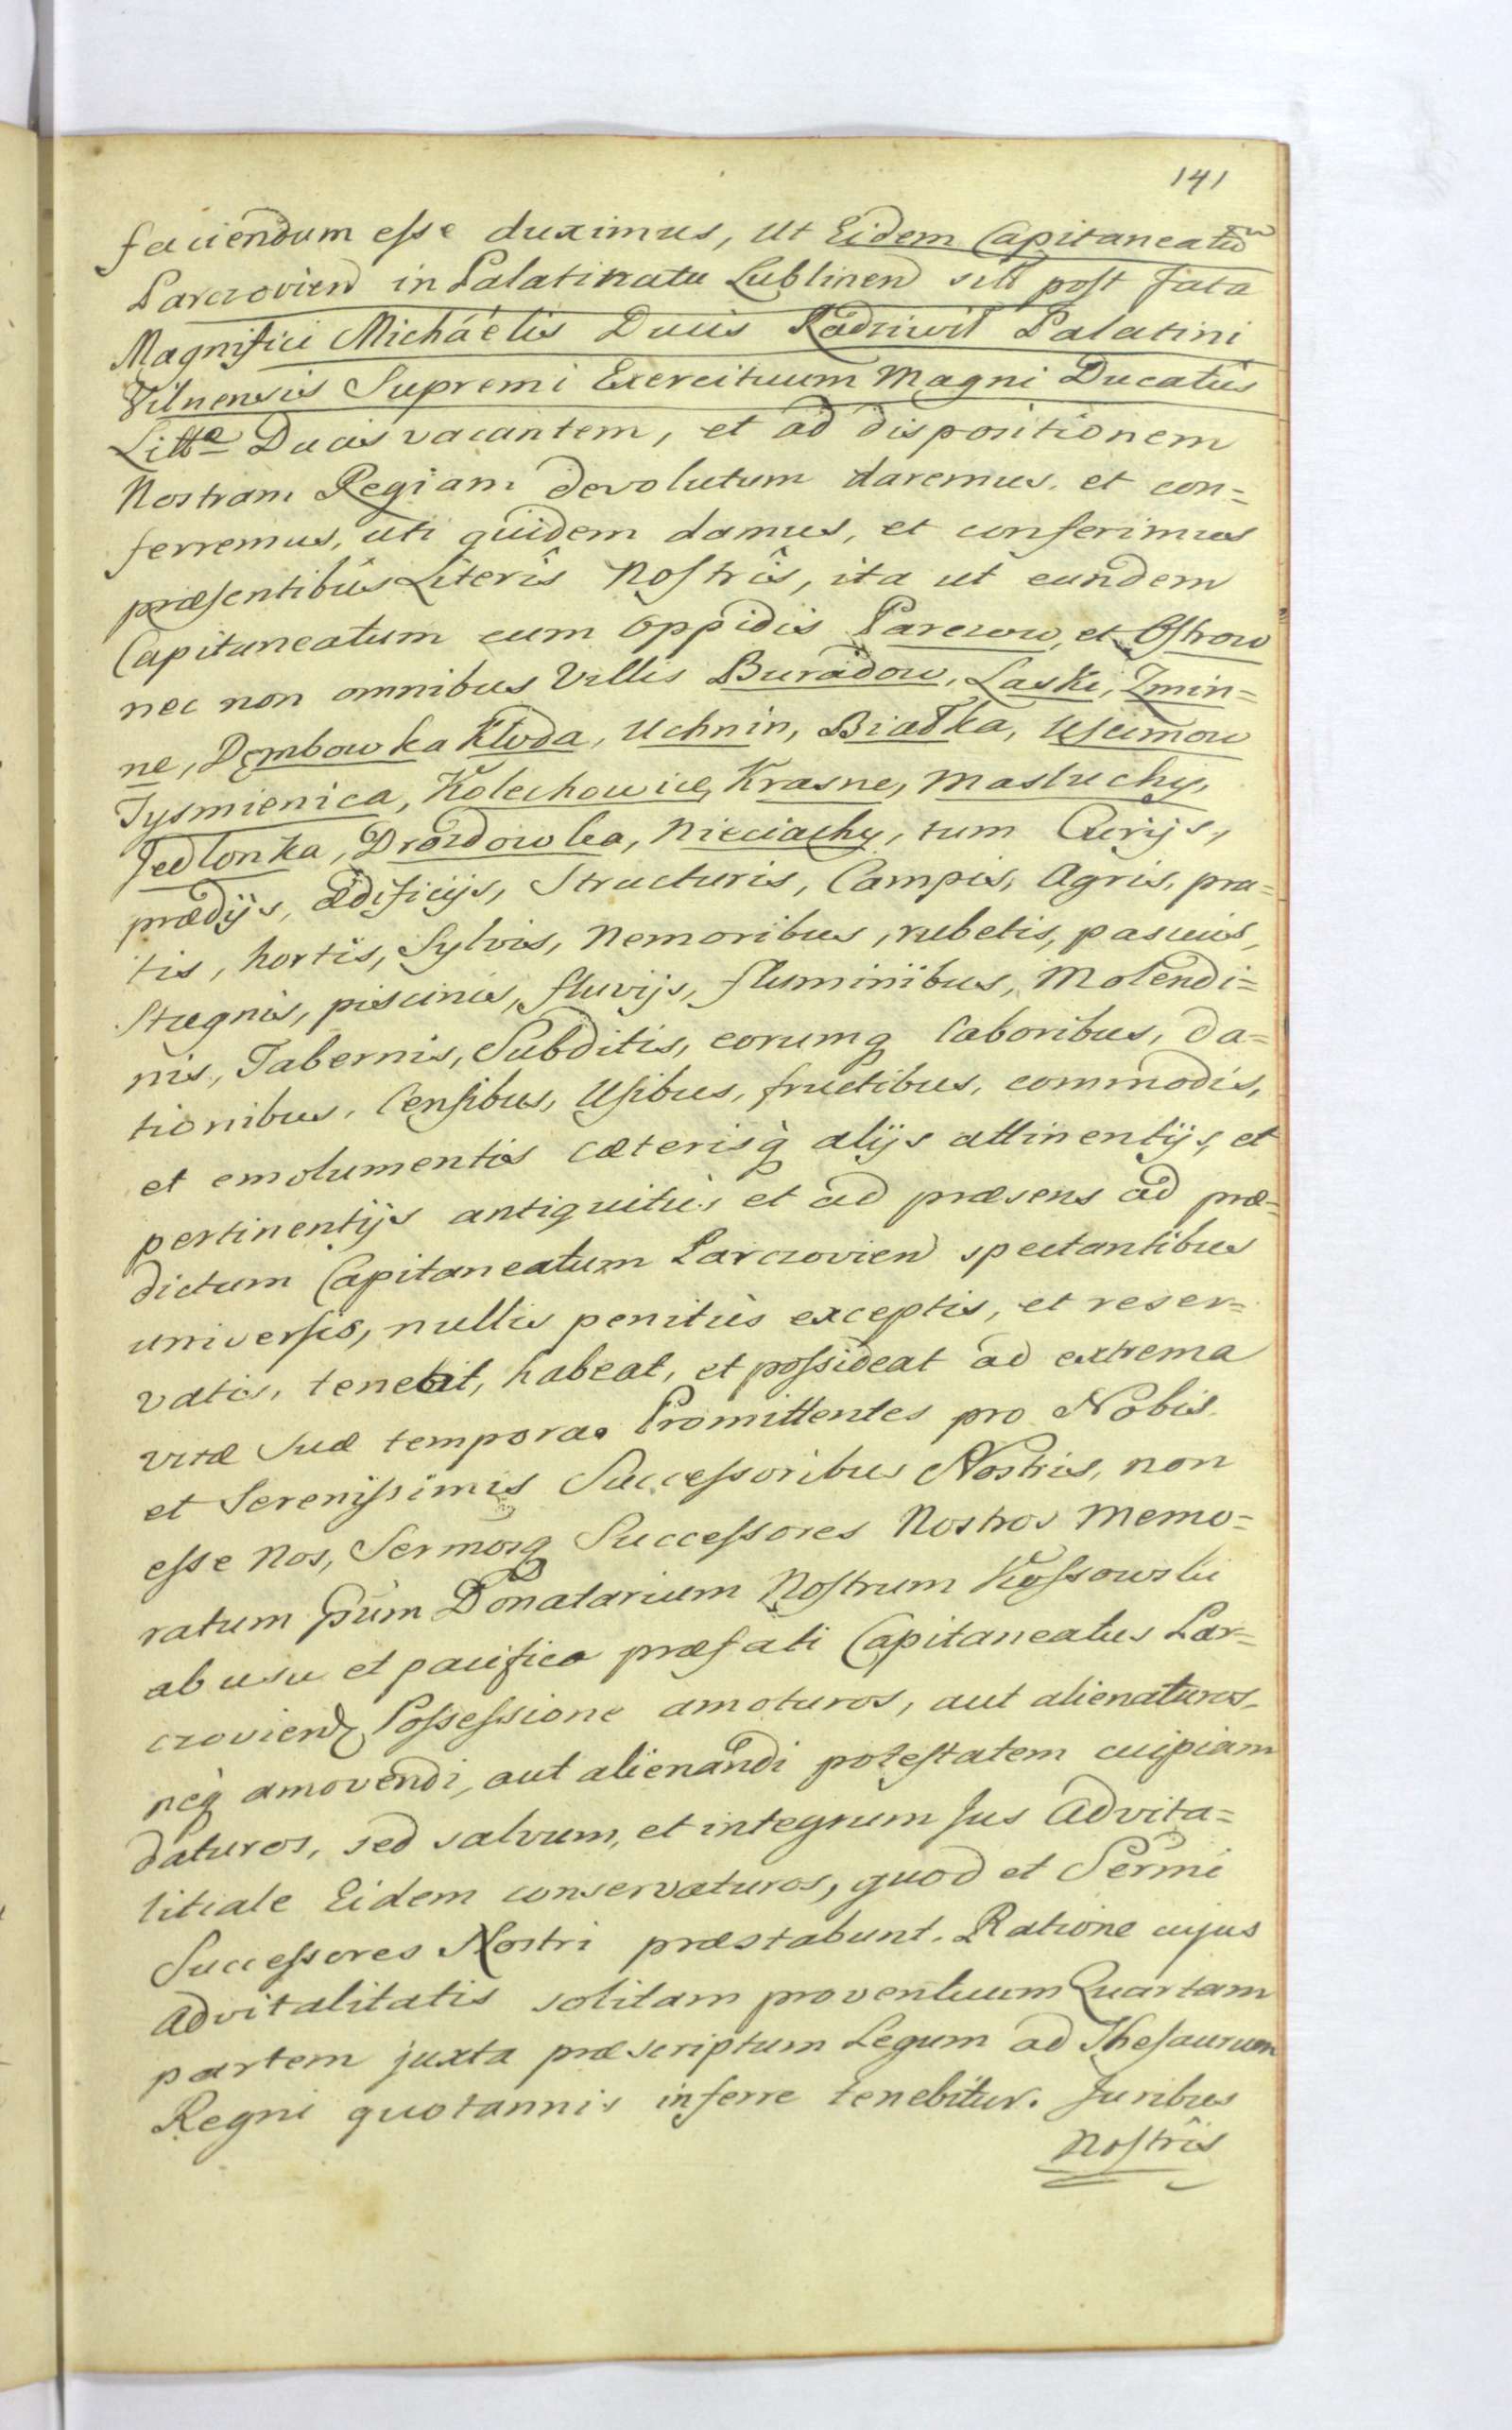 141
faciendum esse duximus, ut Eidem Capitaneatũ
Parczovien in Palatinatu Lublinen sitũ post fata
Magnifici Micháélis Ducis Radziwił Palatini
Vilnensis Supremi Exercituum Magni Ducatûs
Littæ Ducis vacantem, et ad dispositionem
Nostram Regiam devolutum daremus, et con=
ferremus, uti quidem damus, et conferimus
præsentibûs Literîs Nostrîs, ita ut eundem
Capitaneatum cum Oppidis Parczow, et Ostrow
nec non omnibus Villis Buradow, Laski, Zmin=
ne, Dembowka Kłoda, Uchnin, Białka, Uscimow
Tysmienica, Kolechowice, Krasne, Masluchy,
Jedlonka, Drozdowka, Nieciachy, tum Curijs,
prædijs, ædificijs, Structuris, Campis, Agris, pra=
tis, hortis, Sylvis, Nemoribus, rubetis, pascuis,
Stagnis, piscinis, fluvijs, fluminibus, Molendi=
nis, Tabernis, Subditis, eorumq laboribus, da=
tionibus, Censibus, Usibus, fructibus, commodis,
et emolumentis cæterisq̀ alijs attinentijs, et
pertinentijs antiquitùs et ad præsens ad præ=
dictum Capitaneatum Parczovien spectantibus
universis, nullis penitùs exceptis, et reser=
vatis, teneat, habeat, et possideat ad extrema
vitæ suæ tempora. Promittentes pro Nobis
et Serenissimis Successoribus Nostris, non
esse Nos, Sermosq Successores Nostros memo=
ratum Gsum Donatarium Nostrum Kossowski
ab usu et pacifica præfati Capitaneatus Par=
czovien Possessione amoturos, aut alienaturos,
neq̀ amovendi, aut alienandi potestatem cuipiam
daturos, sed salvum, et integrum Jus Advita=
litiale Eidem conservaturos, quod et Sermi
Successores Nostri præstabunt. Ratione cujus
Advitalitatis solitam proventuum Quartam
partem juxta præscriptum Legum ad Thesaurum
Regni quotannis inferre tenebitur. Juribus
Nostrîs